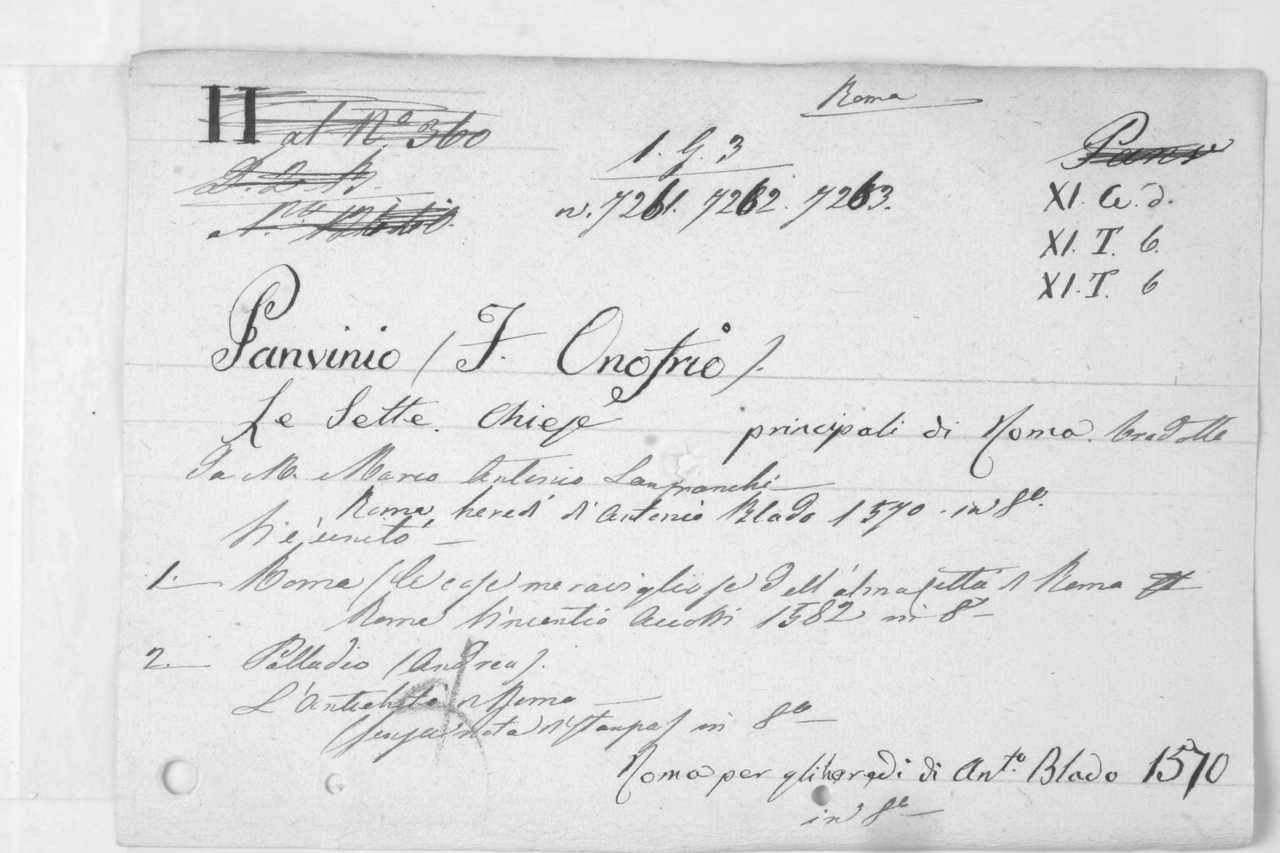 Roma
II al N.º 360
1. G. 3
n. 7261. 7262. 7263.
Panv
XI. G. d.
XI. T. 6.
XI. T. 6
Panvinio (F. Onofrio).
Le Sette Chiese principali di Roma tradotte
da M. Marco Antonio Lanfranchi
Roma, heredi d'Antonio Blado 1570 in 8º.
Vi è unito
1. Roma (Le cose meravigliose dell'alma città d Roma
Roma Vincentio Accolti 1582 in 8º
2. Palladio (Andrea).
L'Antichità d Roma
(senza nota di stampa) in 8º
Roma per gli heredi di Ant.º Blado 1570
in 8º